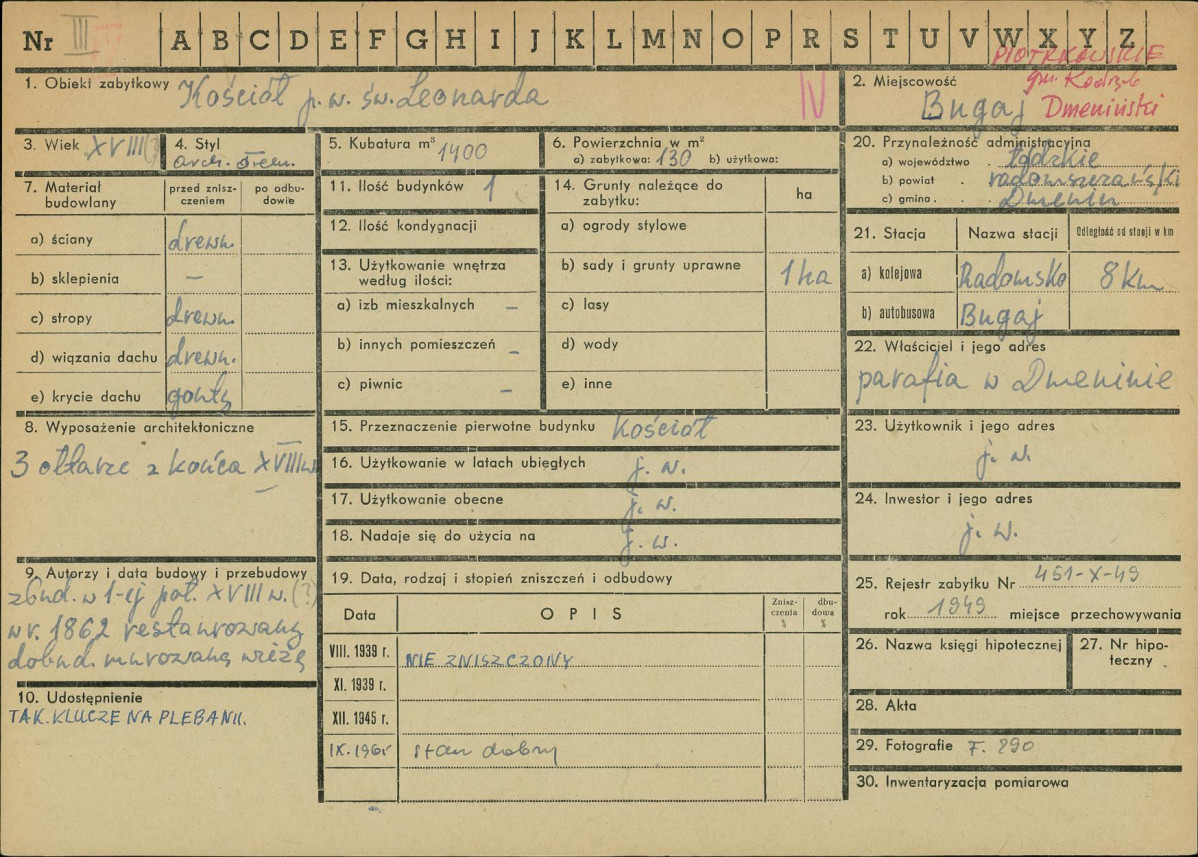 Nr III A B C D E F G H I J K L M N O P R S T U V W X Y Z
PIOTRKOWSKIE
1. Obiekt zabytkowy Kościół p.w. św. Leonarda IV
2. Miejscowość gm. Kodrąb
Bugaj Dmeniński
3. Wiek XVIII(?)
4. Styl
arch. drewn.
5. Kubatura m³ 1400
6. Powierzchnia w m²
a) zabytkowa: 130 b) użytkowa:
20. Przynależność administracyjna
a) województwo łódzkie
b) powiat radomszczański
c) gmina Dmenin
7. Materiał budowlany
przed zniszczeniem
po odbudowie
a) ściany drewn.
b) sklepienia –
c) stropy drewn.
d) wiązania dachu drewn.
e) krycie dachu gonty
11. Ilość budynków 1
12. Ilość kondygnacji
13. Użytkowanie wnętrza
według ilości:
a) izb mieszkalnych –
b) innych pomieszczeń –
c) piwnic –
14. Grunty należące do
zabytku:
ha
a) ogrody stylowe
b) sady i grunty uprawne 1 ha
c) lasy
d) wody
e) inne
21. Stacja Nazwa stacji Odległość od stacji w km
a) kolejowa Radomsko 8 km
b) autobusowa Bugaj
22. Właściciel i jego adres
parafia w Dmeninie
8. Wyposażenie architektoniczne
3 ołtarze z końca XVIII w.
15. Przeznaczenie pierwotne budynku kościół
16. Użytkowanie w latach ubiegłych j. w.
17. Użytkowanie obecne j. w.
18. Nadaje się do użycia na j. w.
23. Użytkownik i jego adres
j. w.
24. Inwestor i jego adres
j. w.
9. Autorzy i data budowy i przebudowy
zbud. w 1-ej poł. XVIII w. (?)
w r. 1862 restaurowany
dobud. murowaną wieżę
10. Udostępnienie
TAK. KLUCZE NA PLEBANII.
19. Data, rodzaj i stopień zniszczeń i odbudowy
Data OPIS Zniszczenia % dbudowa %
VIII. 1939 r. NIE ZNISZCZONY
XI. 1939 r.
XII. 1945 r.
IX. 1965 stan dobry
25. Rejestr zabytku Nr 451-X-49
rok 1949 miejsce przechowywania
26. Nazwa księgi hipotecznej
27. Nr hipoteczny
28. Akta
29. Fotografie F. 890
30. Inwentaryzacja pomiarowa